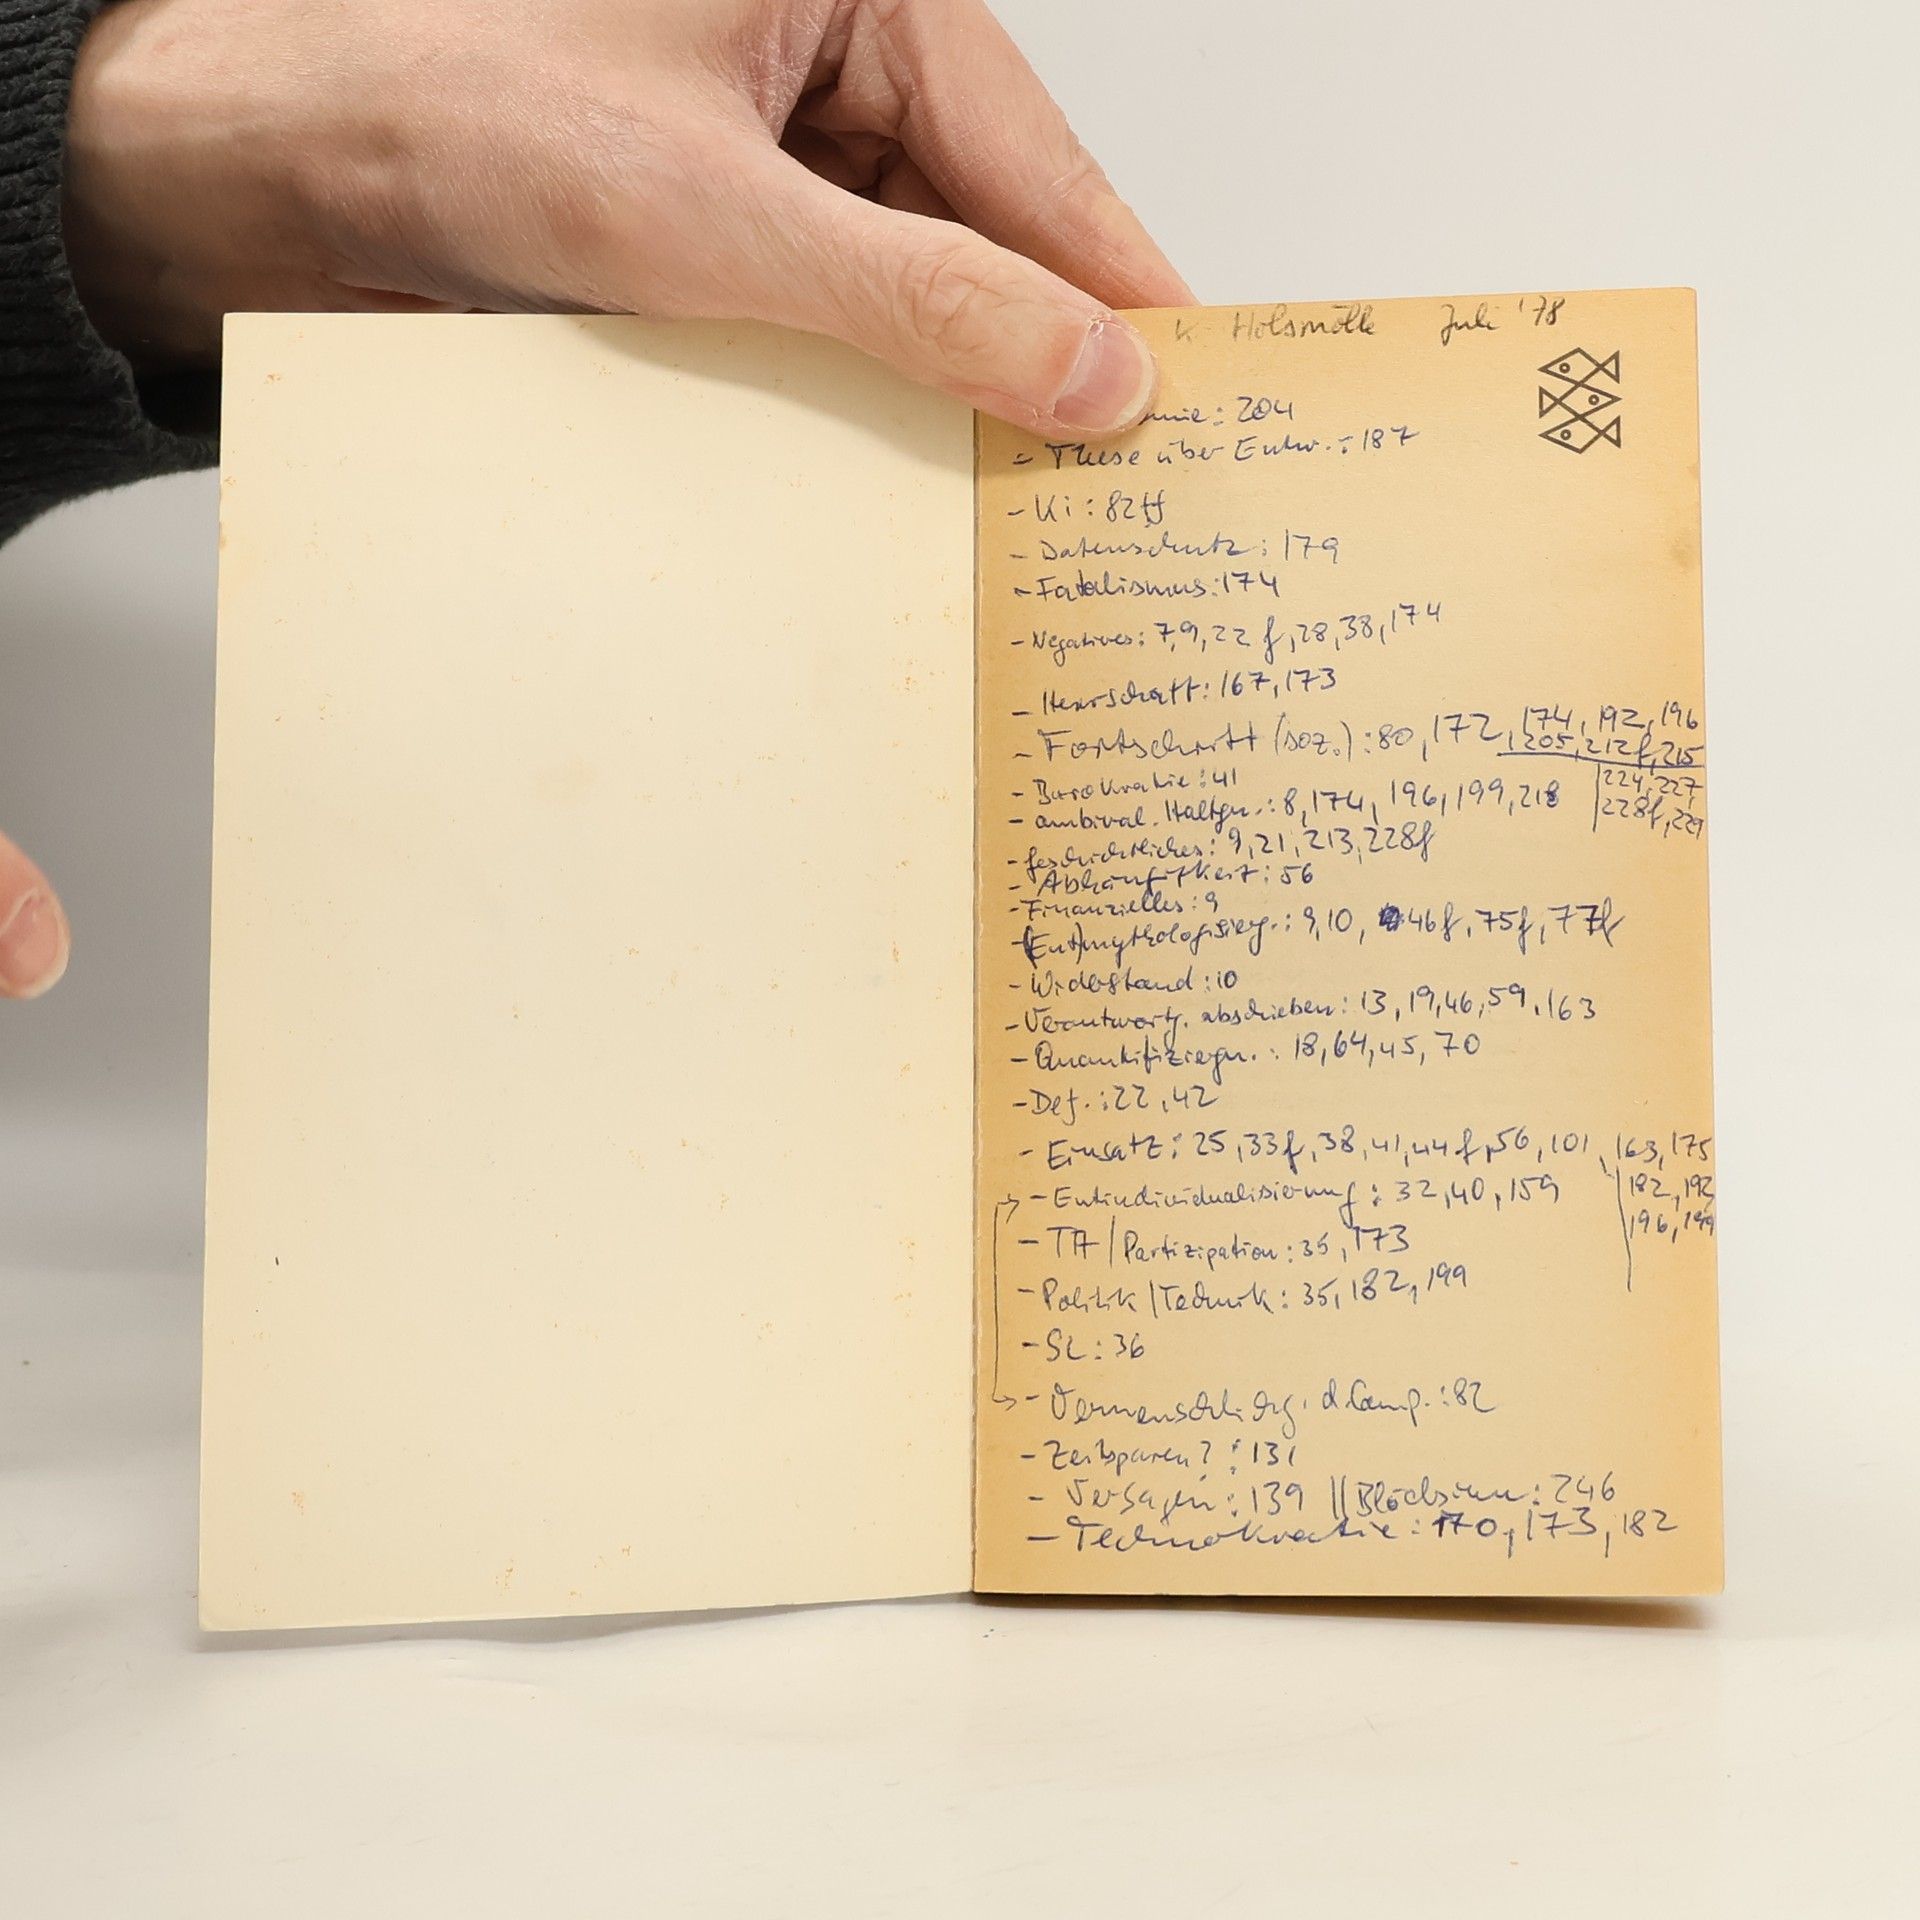 K. Holsmölle Juli '78
: 204
- These über Entw.: 187
- Ki: 82ff
- Datenschutz: 179
- Fatalismus: 174
- Negatives: 7,9,22f,28,38,174
- Herrschaft: 167,173
- Fortschritt (soz.): 80,172,174,192,196
,205,212f,215
224,227,
228f,229
- Bürokratie: 41
- ambival. Haltgn.: 8,174,196,199,218
- geschichtliches: 9,21,213,228f
- Abhängigkeit: 56
- Finanzielles: 9
- (Ent)mythologisierg.: 9,10, 46f,75f,77f
- Widerstand: 10
- Verantwortg. abschieben: 13,19,46,59,163
- Quantifiziergn.: 18,64,45,70
- Def.: 22,42
- Einsatz: 25,33f,38,41,44f,56,101,163,175
182,192
196,199
- Entindividualisierung: 32,40,159
- TA/Partizipation: 35,173
- Politik/Technik: 35,182,199
- SL: 36
- Vermenschlichg. d. Comp.: 82
- Zeitsparen?: 131
- Versagen: 139 || Blödsinn: 246
- Technokratie: 170,173,182